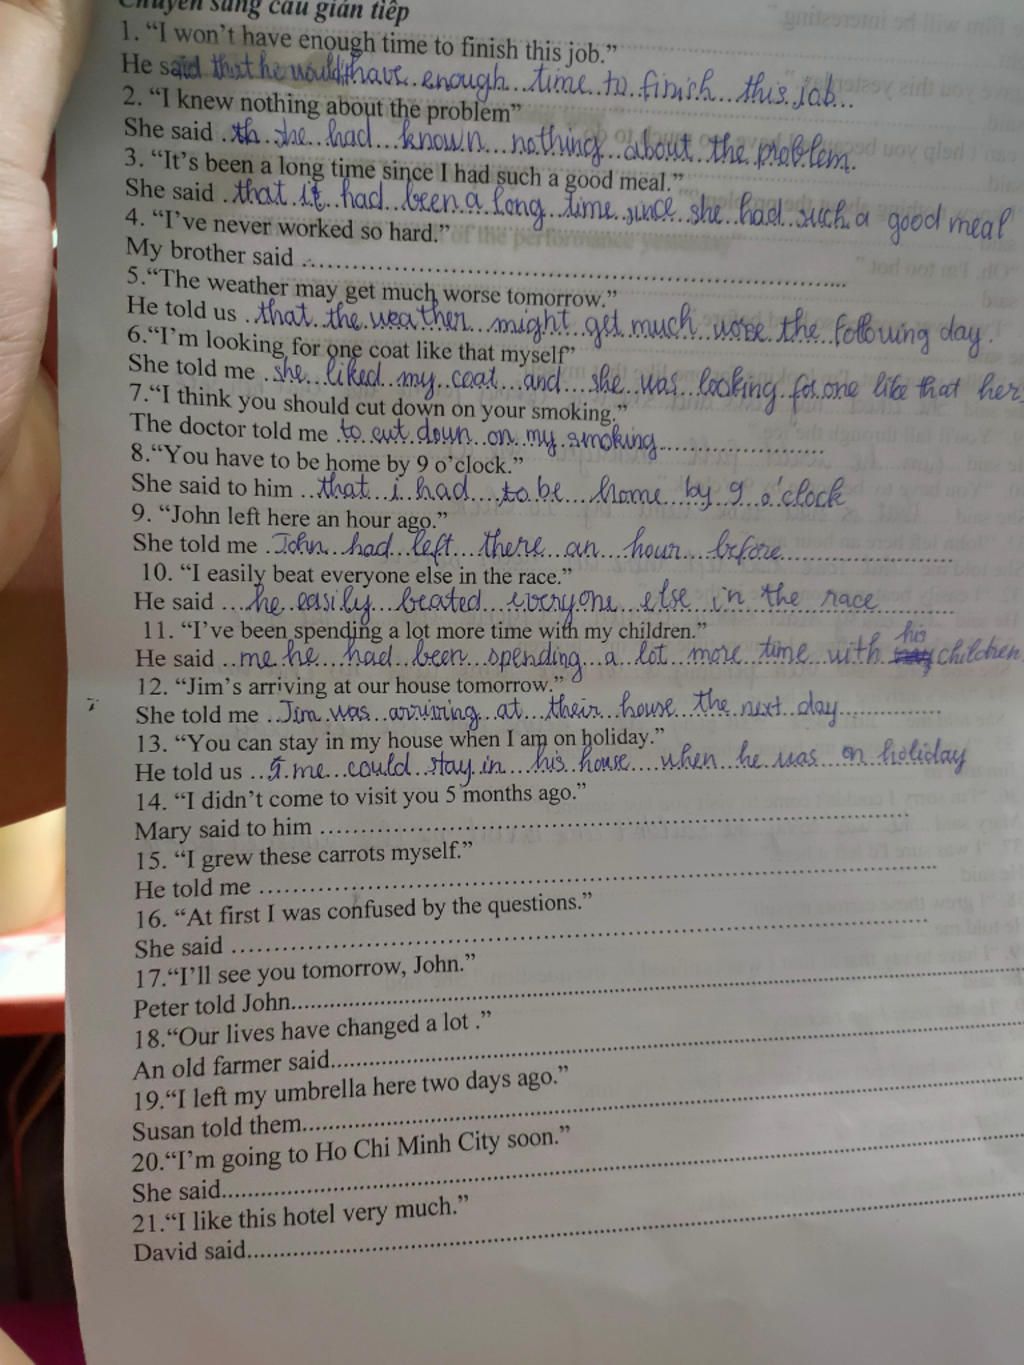 Chuyển sang câu gián tiếp
1. “I won’t have enough time to finish this job.”
He said that he would have enough time to finish this job
2. “I knew nothing about the problem”
She said she had known nothing about the problem.
3. “It’s been a long time since I had such a good meal.”
She said that it had been a long time since she had such a good meal
4. “I’ve never worked so hard.”
My brother said
5.“The weather may get much worse tomorrow.”
He told us that the weather might get much worse the following day.
6.“I’m looking for one coat like that myself”
She told me she liked my coat and she was looking for one like that her
7.“I think you should cut down on your smoking.”
The doctor told me to cut down on my smoking
8.“You have to be home by 9 o’clock.”
She said to him that i had to be home by 9 o'clock
9. “John left here an hour ago.”
She told me John had left there an hour before
10. “I easily beat everyone else in the race.”
He said he easily beated everyone else in the race
11. “I’ve been spending a lot more time with my children.”
He said me he had been spending a lot more time with his children
12. “Jim’s arriving at our house tomorrow.”
She told me Jim was arriving at their house the next day
13. “You can stay in my house when I am on holiday.”
He told us me could stay in his house when he was on holiday
14. “I didn’t come to visit you 5 months ago.”
Mary said to him
15. “I grew these carrots myself.”
He told me
16. “At first I was confused by the questions.”
She said
17.“I’ll see you tomorrow, John.”
Peter told John
18.“Our lives have changed a lot .”
An old farmer said
19.“I left my umbrella here two days ago.”
Susan told them
20.“I’m going to Ho Chi Minh City soon.”
She said
21.“I like this hotel very much.”
David said